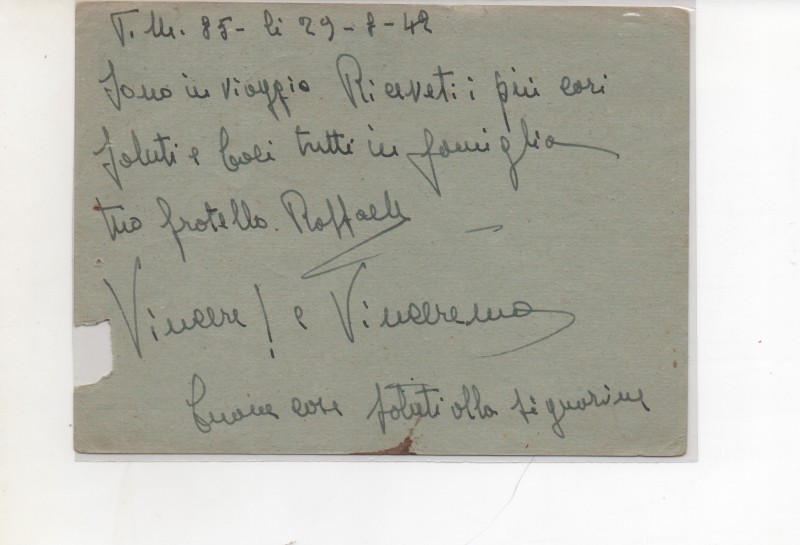 T. M. 85 - li 29 - 8 - 42
Sono in viaggio Riceveti i più cari
Saluti e baci tutti in famiglia
tuo fratello. Raffaele
Vincere! e Vinceremo
cose saluti alla signorine